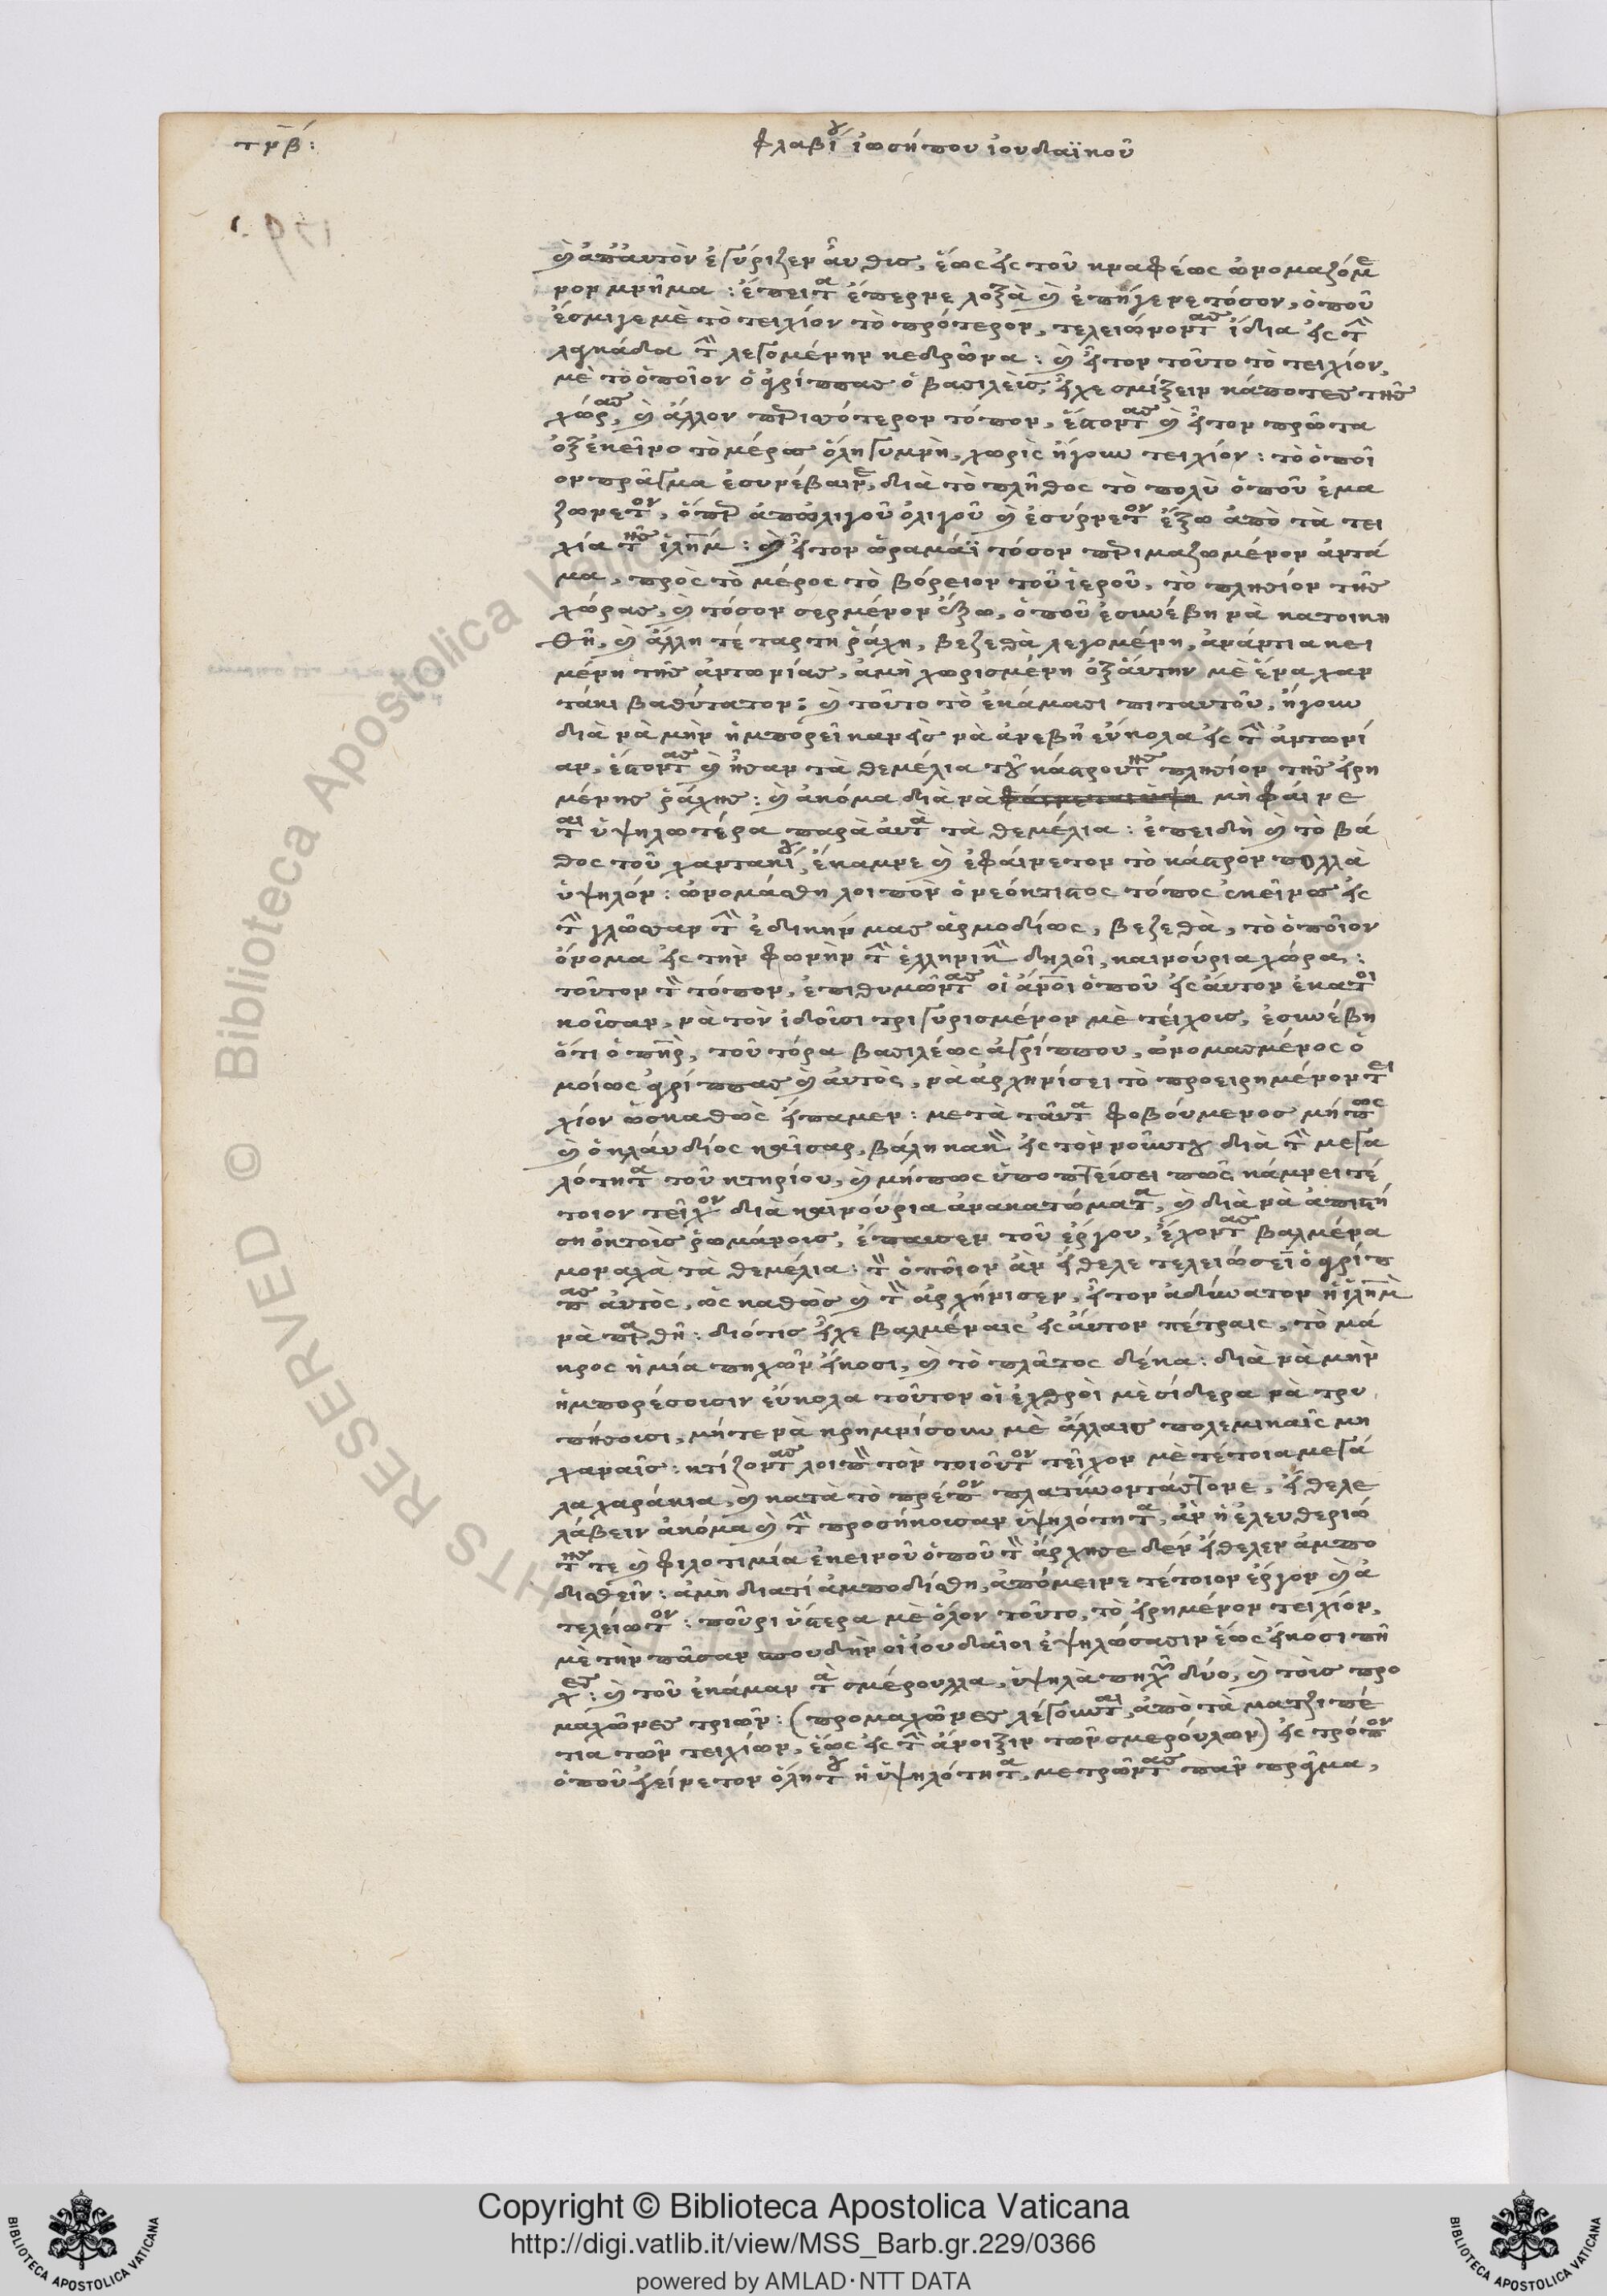 τνβ:
φλαβίου ἰωσήπου ἰουδαϊκοῦ
καὶ ἀπ' αὐτὸν ἐγύριζεν αὖθις, ἕως εἰς τοῦ κναφέως ὠνομαζόμε
νον μνῆμα: ἔπειτα ἔπερνε λοξὰ καὶ ἐπήγενε τόσον, ὁποῦ
ἔσμιγε μὲ τὸ τειχίον τὸ πρότερον, τελειώνοντας ἴδια εἰς τὴν
λαγκάδα τὴν λεγομένην κεδρῶνα: καὶ ἦτον τοῦτο τὸ τειχίον,
μὲ τὸ ὁποῖον ὁ ἀγρίππας ὁ βασιλεὺς, εἶχε σμίξειν κάποτες τῆς
χώρας, καὶ ἄλλον περισσότερον τόπον, ἔστοντας καὶ ἦτον πρῶτα
ὀξ ἐκεῖνο τὸ μέρος ὅλη γυμνὴ, χωρὶς ἤγουν τειχίον: τὸ ὁποῖ
ον πρᾶγμα ἐσυνέβαινε, διὰ τὸ πλῆθος τὸ πολὺ ὁποῦ ἐμα
ζώνετον, ὅπερ ἀπ' ὀλιγοῦ ὀλιγοῦ καὶ ἐσύρνετον ἔξω ἀπὸ τὰ τει
χία τῆς ἱλημ: καὶ ἦτον ὡραμάϊ τόσον περιμαζωμένον ἀντά
μα, πρὸς τὸ μέρος τὸ βόρειον τοῦ ἱεροῦ, τὸ πλησίον τῆς
χώρας, καὶ τόσον σερμένον ἔξω, ὁποῦ ἐσυνέβη νὰ κατοικη
θῆ, καὶ ἄλλη τέταρτη ῥάχη, βεζεθὰ λεγομένη, ἀνάντια κει
μένη τῆς ἀντωνίας, ἀμὴ χωρισμένη ὀξ αὐτὴν μὲ ἕνα χαν
τάκι βαθύτατον: καὶ τοῦτο τὸ ἐκάμασι πιταυτοῦ, ἤγουν
διὰ νὰ μὴν ἠμπορεῖ κανεὶς νὰ ἀνεβῆ εὔκολα εἰς τὴν ἀντωνί
αν, ἔστοντας καὶ ἦσαν τὰ θεμέλια τοῦ κάστρου της πλησίον τῆς εἰρη
μένης ῥάχης: καὶ ἀκόμα διὰ νὰ μὴ φαίνε
ται ὑψηλωτέρα παρὰ αὐτὰ τὰ θεμέλια: ἐπειδὴ καὶ τὸ βά
θος τοῦ χαντακίου, ἔκαμνε καὶ ἐφαίνετον τὸ κάστρον πολλὰ
ὑψηλόν: ὠνομάσθη λοιπὸν ὁ νεόκτιστος τόπος ἐκεῖνος εἰς
τὴν γλῶσσαν τὴν ἐδικήν μας ἁρμοδίως, βεζεθὰ, τὸ ὁποῖον
ὄνομα εἰς τὴν φωνὴν τὴν ἑλληνικὴν δηλοῖ, καινούρια χώρα:
τοῦτον τὸν τόπον, ἐπιθυμῶντας οἱ ἄνοι ὁποῦ εἰς αὐτὸν ἐκατοι
κοῦσαν, νὰ τὸν ἰδοῦσι τριγυρισμένον μὲ τείχους, ἐσυνέβη
ὅτι ὁ πηρ, τοῦ τόρα βασιλέως ἀγρίππου, ὠνομασμένος ὁ
μοίως ἀγρίππας καὶ αὐτὸς, νὰ ἀρχηνίσει τὸ προειρημένον τει
χίον ὡσκαθὼς εἴπαμεν: μετὰ ταῦτα φοβούμενος μήπως
καὶ ὁ κλαύδιος καῖσαρ, βάλη κακὸν εἰς τὸν νοῦν του διὰ τὴν μεγα
λότητα τοῦ κτηρίου, καὶ μήπως ὑποπτεύσει πῶς κάμνει τέ
τοιον τεῖχον διὰ καινούρια ἀνακατώματα, καὶ διὰ νὰ ἀποστή
ση ἐκ τοὺς ῥωμάνους, ἔπαυσεν τοῦ ἔργου, ἔχοντας βαλμένα
μοναχὰ τὰ θεμέλια: τὸ ὁποῖον ἂν ἤθελε τελειώσει ὁ ἀγρίπ
πας αὐτὸς, ὡς καθὼς καὶ τὸ ἀρχήνισεν, ἦτον ἀδύνατον ἡ ἱλημ
νὰ παρθῆ: διότις εἶχε βαλμέναις εἰς αὐτὸν πέτραις, τὸ μά
κρος ἡ μία πηχῶν εἴκοσι, καὶ τὸ πλάτος δέκα: διὰ νὰ μὴν
ἠμπορέσουσιν εὔκολα τοῦτον οἱ ἐχθροὶ μὲ σίδερα νὰ τρυ
πήσουσι, μήτε νὰ κρημνίσουν μὲ ἄλλαις πολεμικαῖς μη
χαναῖς: κτίζοντας λοιπὸν τὸν τοιοῦτον τεῖχον μὲ τέτοια μεγά
λα χαράκια, καὶ κατὰ τὸ πρέπον πλατύνοντάς τονε, ἤθελε
λάβειν ἀκόμα καὶ τὴν προσήκουσαν ὑψηλότητα, ἂν ἡ ἐλευθεριό
της τε καὶ φιλοτιμία ἐκεινοῦ ὁποῦ τὸ ἄρχησε δὲν ἤθελεν ἀμπο
δισθεῖν: ἀμὴ διατί ἀμποδίσθη, ἀπόμεινε τέτοιον ἔργον καὶ ἀ
τελείωτον: ποῦρι ὕστερα μὲ ὅλον τοῦτο, τὸ εἰρημένον τειχίον,
μὲ τὴν πᾶσαν σπουδὴν οἱ ἰουδαῖοι ἐψηλώσασιν ἕως εἴκοσι πή
χες: καὶ τοῦ ἐκάμαν τὰ σμέρουλλα, ὑψηλὰ πηχῶν δύο, καὶ τοὺς προ
μαχῶνες τριῶν: (προμαχῶνες λέγουνται, ἀπὸ τὰ ματζιπέ
τια τῶν τειχίων, ἕως εἰς τὴν ἄνοιξιν τῶν σμερούλων) εἰς τρόπον
ὁποῦ ἐγείνετον ὅλη του ἡ ὑψηλότητα, μετρῶντας πᾶν πρᾶγμα,
Copyright © Biblioteca Apostolica Vaticana
http://digi.vatlib.it/view/MSS_Barb.gr.229/0366
powered by AMLAD·NTT DATA